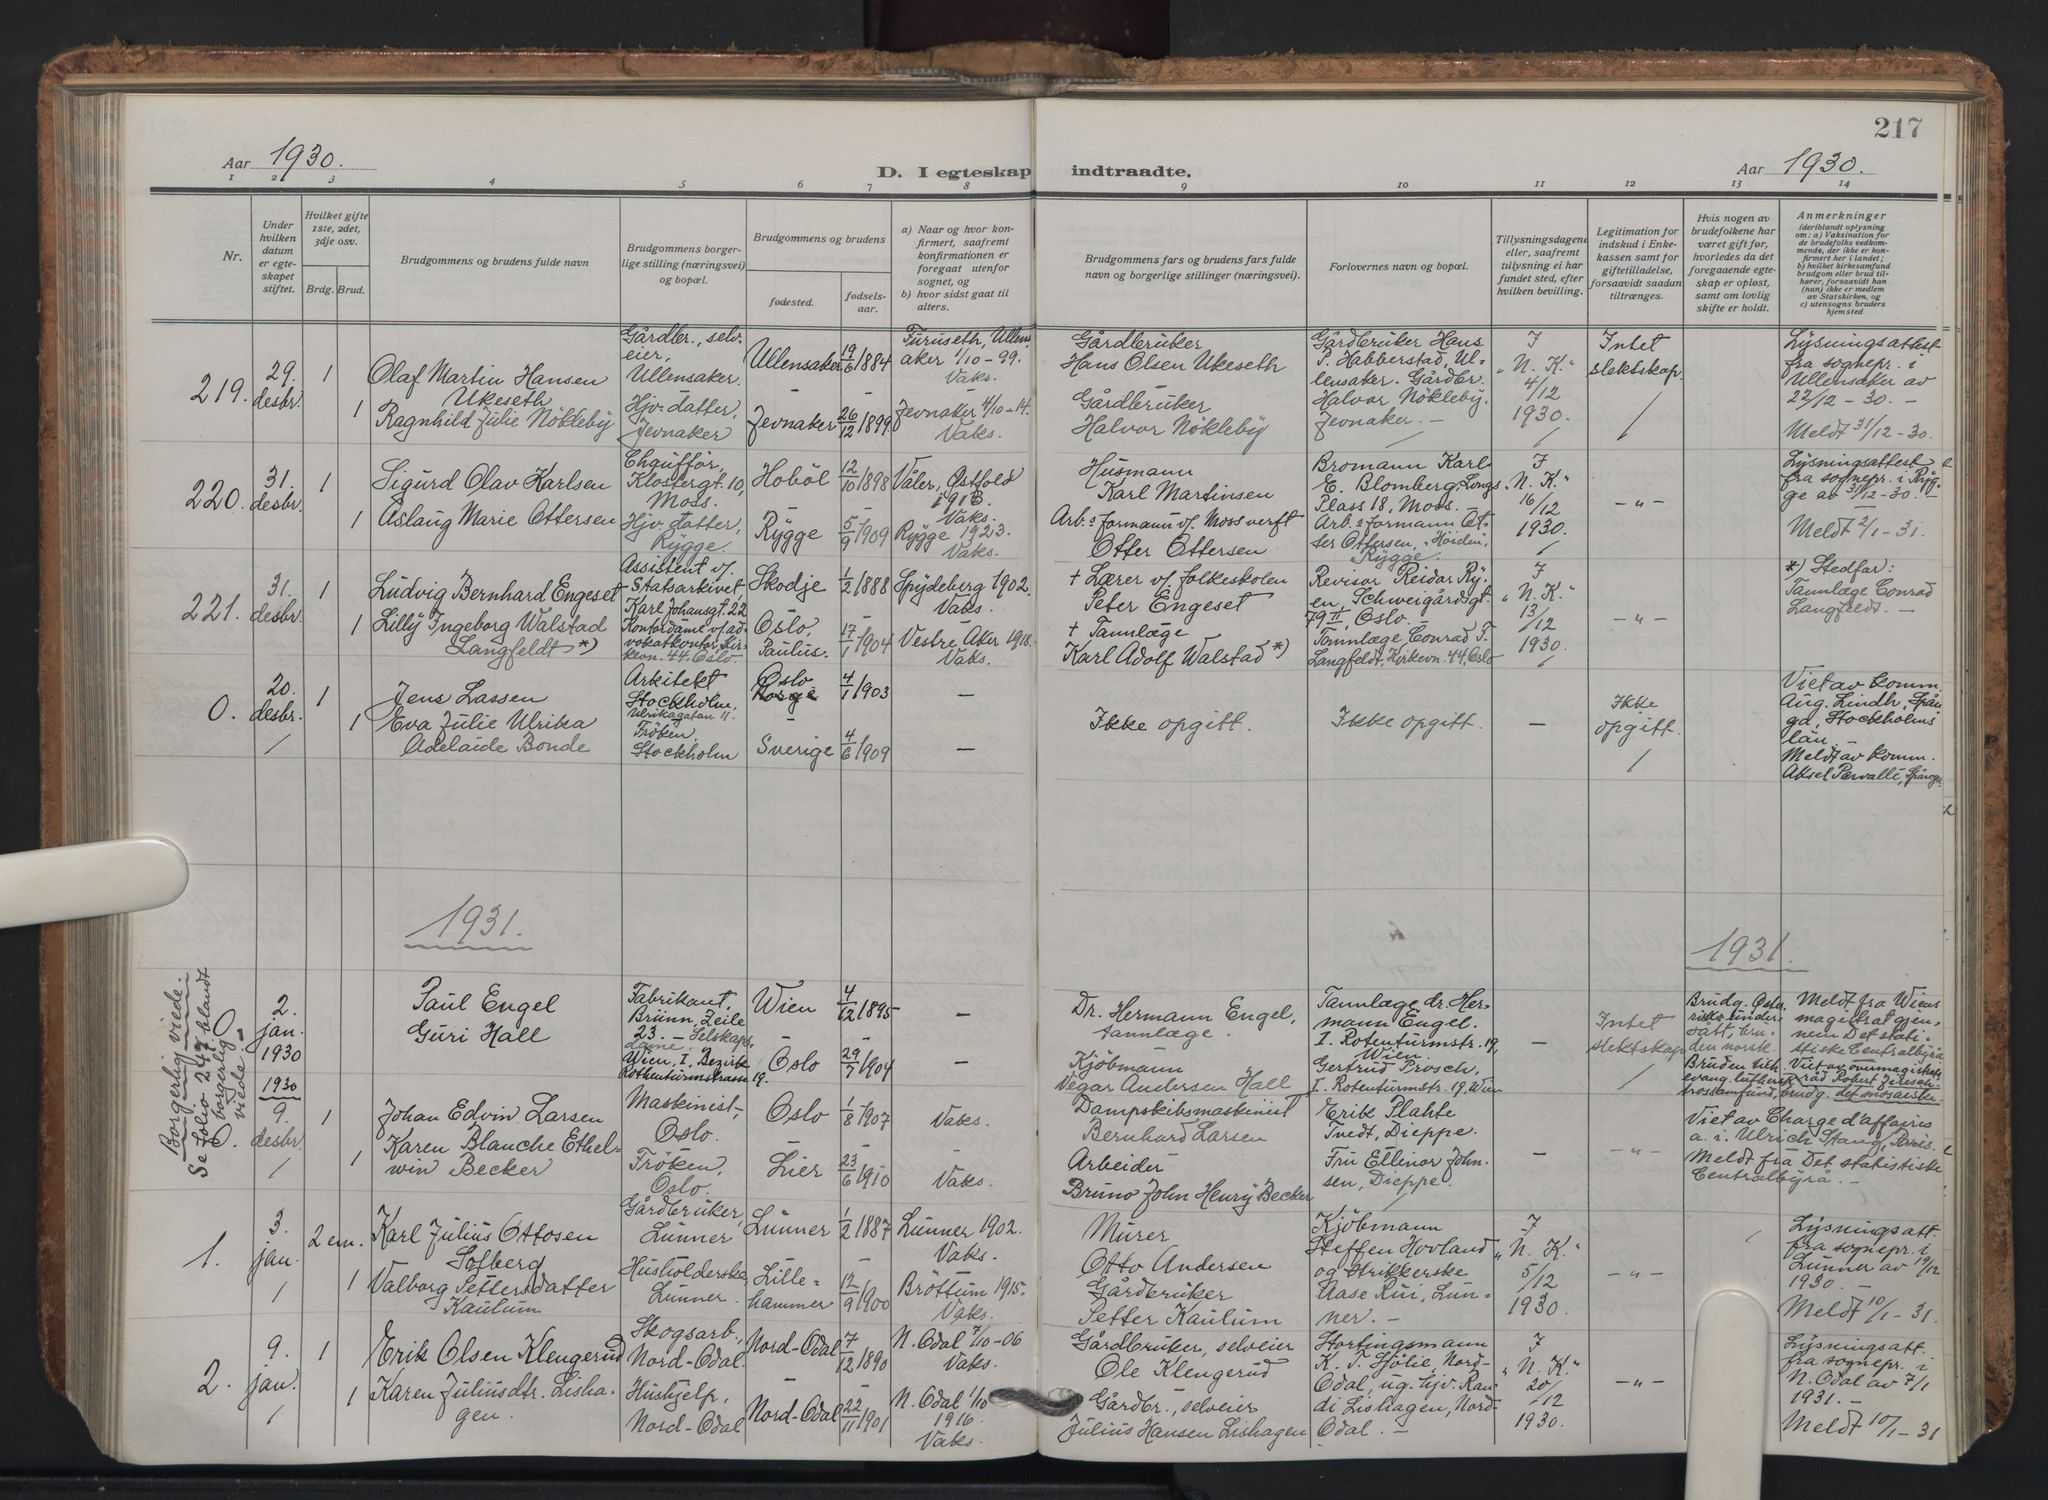 217
Aar 1930.
D. I egteskap indtraadte.
Aar 1930.
1 2 3 4 5 6 7 8 9 10 11 12 13 14
Nr.
Under
hvilken
datum
er egte-
skapet
stiftet.
Hvilket gifte
1ste, 2det,
3dje osv.
Brdg. Brud.
Brudgommens og brudens fulde navn
Brudgommens borger-
lige stilling (næringsvei)
og bopæl.
Brudgommens og brudens
fødested.
fødsels-
aar.
a) Naar og hvor kon-
firmert, saafremt
konfirmationen er
foregaat utenfor
sognet, og
b) hvor sidst gaat til
alters.
Brudgommens fars og brudens fars fulde
navn og borgerlige stillinger (næringsvei).
Forlovernes navn og bopæl.
Tillysningsdagene
eller, saafremt
tillysning ei har
fundet sted, efter
hvilken bevilling.
Legitimation for
indskud i Enke-
kassen samt for
giftetilladelse,
forsaavidt saadan
tiltrænges.
Hvis nogen av
brudefolkene har
været gift før,
hvorledes da det
foregaaende egte-
skap er opløst,
samt om lovlig
skifte er holdt.
Anmerkninger
(deriblandt oplysning
om: a) Vaksination for
de brudefolks vedkom-
mende, der ikke er kon-
firmert her i landet;
b) hvilket kirkesamfund
brudgom eller brud til-
hører, forsaavidt han
(hun) ikke er medlem
av Statskirken, og
c) utensogns bruders
hjemsted
219.
29.
desbr.
1
Olaf Martin Hansen
Ukeseth
1
Ragnhild Julie Nökleby
Gårdbr., selv-
eier,
Ullensaker.
Hjv. datter,
Jevnaker
Ullensaker 19/6 1884
Jevnaker 26/12 1899
Furuseth, Ullens-
aker 1/10-99.
Vaks.
Jevnaker 4/10-14.
Vaks.
Gårdbruker
Hans Olsen Ukeseth
Gårdbruker
Halvor Nökleby
Gårdbruker Hans
P. Habberstad, Ul-
lensaker. Gårdbr.
Halvor Nökleby,
Jevnaker. —
I
"N. K."
4/12
1930.
Intet
slektskap.
Lysningsattest
fra sognepr. i
Ullensaker av
22/12-30. —
Meldt 31/12-30.
220.
31.
desbr.
1
Sigurd Olav Karlsen
1
Aslaug Marie Ottersen
Chaufför,
Klostergt. 10,
Moss.
Hjv. datter,
Rygge.
Hoböl 12/10 1898
Rygge 5/9 1909
Våler, Østfold
1913.
Vaks.
Rygge 1923.
Vaks.
Husmann
Karl Martinsen
Arb.s formann v/ Moss verft
Otter Ottersen
Bromann Karl
E. Blomberg, Longs
Plass 18, Moss. —
Arb.s formann Ot-
ter Ottersen, "Höiden",
Rygge.
I
"N. K."
16/12
1930.
—"—
Lysningsattest
fra sognepr. i Ryg-
ge av 31/12-30. —
Meldt 2/1-31.
221.
31.
desbr.
1
Ludvig Bernhard Engeset
1
Lilly Ingeborg Walstad
Langfeldt *)
Assistent v/
Statsarkivet,
Karl Johansgt. 22
Kontordame v/ ad-
vokatkontor, Kir-
kevn. 44, Oslo.
Skodje 1/2 1888
Oslo,
Paulus. 17/1 1904
Spydeberg 1902.
Vaks.
Vestre Aker 1918.
Vaks.
+ Lærer v/ folkeskolen
Peter Engeset
+ Tannlæge
Karl Adolf Walstad *)
Revisor Reidar Ry-
en, Schweigårdsgt.
79 II, Oslo. —
Tannlæge Conrad F.
Langfeldt, Kirkevn. 44, Oslo
I
"N. K."
13/12
1930.
—"—
*) Stedfar:
Tannlæge Conrad
Langfeldt. —
0.
20.
desbr.
1
Jens Lassen
1
Eva Julie Ulrika
Adelaide Bonde
Arkitekt
Stockholm,
Ulriksgatan 11.
Fröken,
Stockholm
Oslo
Norge 4/1 1903
Sverige 4/6 1909
—
—
Ikke opgitt.
Ikke opgitt.
—
Ikke
opgitt.
Viet av komm.
Aug. Lindh, Spån-
ga, Stockholms
län. —
Meldt av komm.
Aksel Pervalli, Spånga
1931.
1931.
Borgerlig viede.
Se folio 247 blandt
borgerlig
viede.
0
2.
jan.
1930
Paul Engel
Guri Hall
Fabrikant,
Brünn, Zeile
23. — Selskaps-
dame,
Wien, I, Bezirke
Rothenturmstrasse 19.
Wien 4/12 1895
Oslo 29/7 1904
—
—
Dr. Hermann Engel,
tannlæge.
Kjöbmann
Vegar Andersen Hall
Tannlæge dr. Her-
mann Engel.
I. Rotenturmstr. 19,
Wien
Gertrud Prosch,
I. Rotenturmstr. 19, Wien
—
Intet
slektskap
Brudg. Öster-
riksk under-
sått, bru-
den norsk.
Bruden tilh.
evang. luthersk
trossamfund, brudg. det mosaiske.
Meldt fra Wiens
magistrat gjen-
nem Det stati-
stiske Centralbyrå
Viet av overmagistrats-
råd Robert
0.
1930
9.
desbr.
1
Johan Edvin Larsen
1
Karen Blanche Ethel-
win Becker
Maskinist,
Oslo.
Fröken,
Oslo.
Oslo 1/8 1907
Lier 23/6 1910
Vaks.
Vaks.
Dampskibsmaskinist
Bernhard Larsen
Arbeider
Bruno John Henry Becker
Erik Plahte
Tvedt, Dieppe.
Fru Ellinor John-
sen, Dieppe.
—
—"—
Viet av Charge d'affaires
a. i. Ulrich Stang, Paris.
Meldt fra Det statistiske
Centralbyrå. —
1.
3.
jan.
2 em.
Karl Julius Ottosen
Solberg
1
Valborg Pettersdatter
Kaulum
Gårdbruker,
Lunner
Husholderske,
Lunner.
Lunner 1/2 1887
Lille-
hammer 12/9 1900
Lunner 1902.
Vaks.
Bröttum 1915.
Vaks.
Murer
Otto Andersen
Gårdbruker
Petter Kaulum
Kjöbmann
Steffen Hovland
og strikkerske
Aase Rui, Lun-
ner. —
I
"N. K."
5/12
1930.
—"—
Lysningsatt.
fra sognepr. i
Lunner av 19/12
1930. —
Meldt 10/1-31.
2.
9.
jan.
1
Erik Olsen Klengerud
1
Karen Juliusdtr. Lisha-
gen.
Skogsarb.,
Nord-Odal.
Hushjelp,
Nord-Odal
Nord-Odal 7/12 1890
Nord-Odal 22/11 1901
N. Odal 7/10-06
Vaks.
N. Odal 1/10
1916.
Vaks.
Gårdbruker, selveier
Ole Klengerud
Gårdbr., selveier
Julius Hansen Lishagen
Stortingsmann
K. T. Sjölie, Nord-
Odal, ug. hjv. Ran-
di Lishagen, Nord-
Odal. —
I
"N. K."
20/12
1930.
—"—
Lysningsatt.
fra sognepr. i
N. Odal av 7/1
1931. —
Meldt 10/1-31